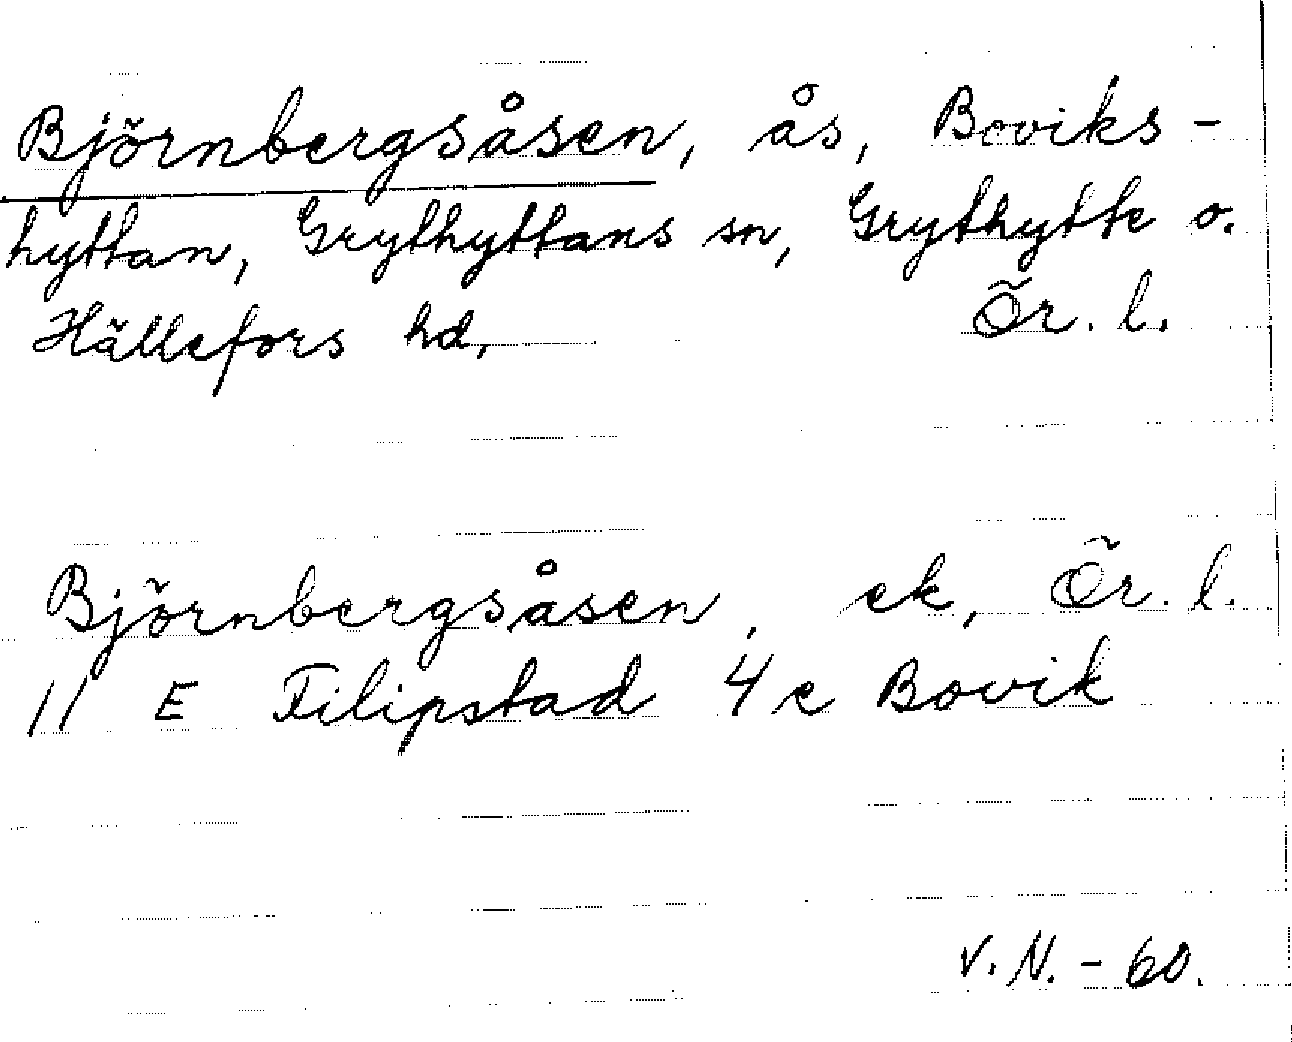 Björnbergsåsen, ås, Boviks-
hyttan, Grythyttans sn, Grythytte o.
Hällefors hd, Ör. l.
Björnbergsåsen, ek, Ör. l.
11 E Filipstad 4 e Bovik
V. N. - 60.